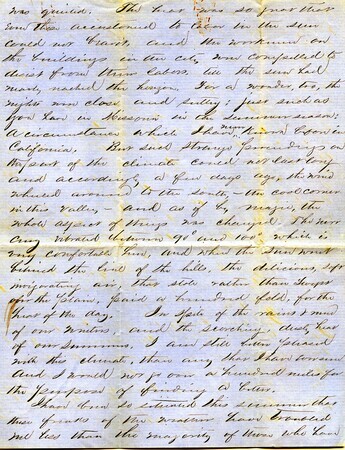 was quieted. The heat was so great that
Even those accustomed to labor in the sun
could not brave, and the workmen on
the buildings in the city, were compelled to
desist from their labors, till the sun had
nearly reached the horizon. For a wonder, too, the
nights were close, and sultry; just such as
you have in Missouri in the summer season:
A circumstance which I have never known before in
California. But such strange proceedings on
the part of the climate could not last long
and accordingly, a few days ago, the wind
wheeled around to the south - the cool corner
in this valley - and as if by magic, the
whole aspect of things was changed. The mer
cury vibrated between 90° and 100° which is
very comfortable here, and when the sun went
behind the crest of the hills, the delicious, soft
invigorating air, that stole rather than swept
over the plain, paid a hundred fold, for the
heat of the day. In spite of the rains & mud
of our winters, and the scorching, dusty heat
of our summers, I am still better pleased
with this climate, than any that I have ever seen
And I would not go over a hundred miles for
the purpose of finding a better.
I have been so situated this summer that
these freaks of the weather have troubled
me less than the majority of those who have